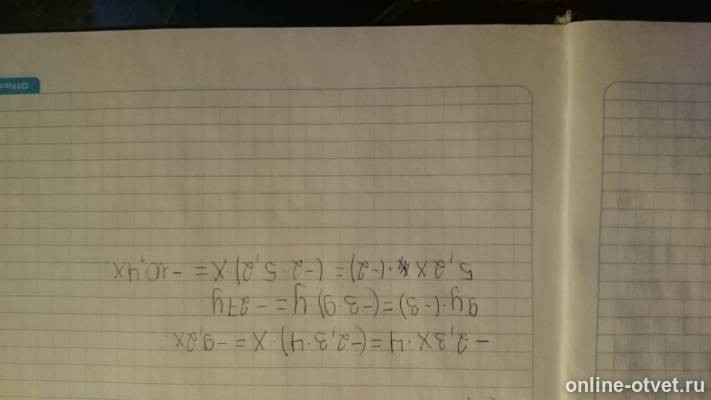 -2,3x·4=(-2,3·4)·x=-9,2x.
9y·(-3)=(-3·9)·y=-27y
5,2x·(-2)=(-2·5,2)·x=-10,4x.
Office
online-otvet.ru